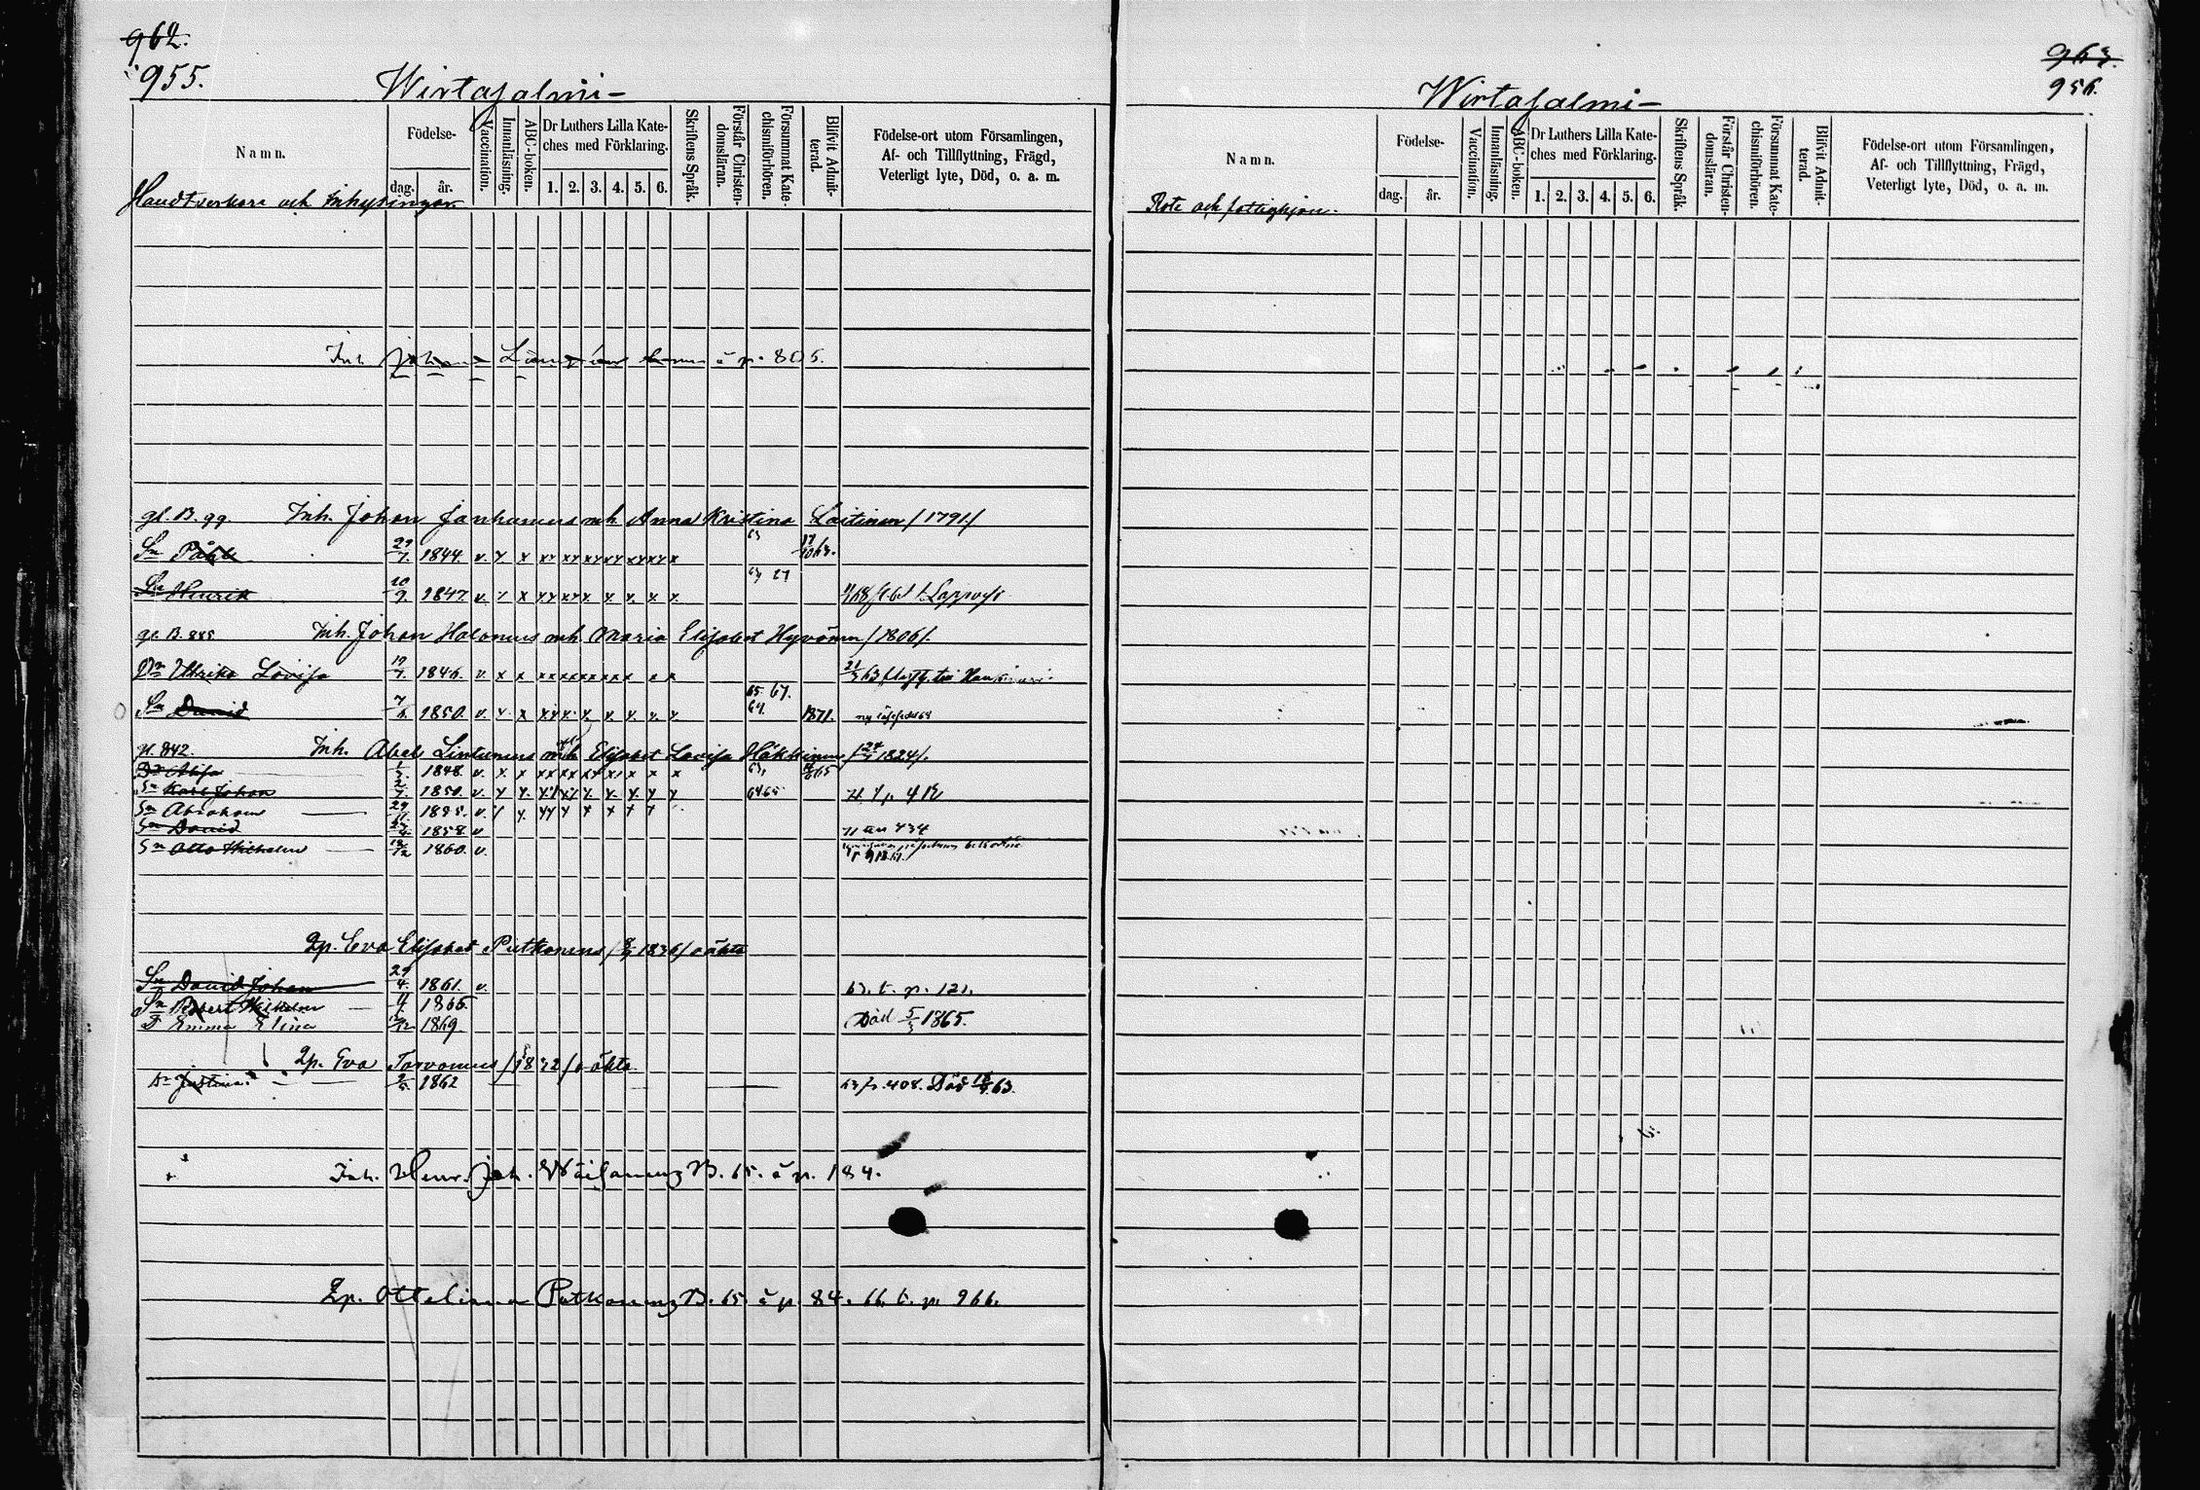 962.
955.
Wirtasalmi-
Namn.
Födelse-
dag.
år.
Vaccination.
Innanläsning.
ABC-boken.
Dr Luthers Lilla Kate-
ches med Förklaring.
1. 2. 3. 4. 5. 6.
Skriftens Språk.
Förstår Christen-
domsläran.
Försummat Kate-
chismiförhören.
Blifvit Admit-
terad.
Födelse-ort utom Församlingen,
Af- och Tillflyttning, Frägd,
Veterligt lyte, Död, o. a. m.
Handtverkare och Inhysingar.
Inh. Johan å p. 805.
gl. B. 99. Inh. Johan Janhunens mh Anna Kristina Laitinen /1791/
Sn Påhl 29/7. 1844. v. x x xx xx xx xx xx xx x 63 17/10 63.
Sn Henrik 10/9. 1847. v. x x xx xx x x x x x 63 27
gl. B. 885 Inh. Johan Halonens mh. Maria Elisabet Hyvönen /1806/.
Dr Ulrika Lovisa 19/7 1846. v. x x xx xx xx xx x x x
Sn David 7/6 1850. v. x x xx x x x x x x 65 67. 69. 1871.
gl. 842. Inh. Abel Lintunens mh Elisabet Lovisa Häkkinens /24/9 1824/.
Dr 1/3. 1848. v. x x xx xx xx x x x x
Sn Karl Johan 2/7. 1850. v. x x. xx xx x x. x. x. x 64 65
Sn Abraham 1855. v. x x. xx x x x x x
Sn David 1858 v 434
Sn Otto Wilhelm 18/12 1860. v.
Qp. Eva Elisabet Putkonens /8/4 1836/ oäkta
Sn David Johan 29/4. 1861. v. 63. t. p. 121.
Sn Robert Wilhelm 1865.
D Emma Elina 1869. Död 5/3 1865.
Qp. Eva Tarvonens /1832/ oäkta
Dr Justina 1862 63 p. 408. Död 63.
Inh. Henr. Joh. B. 65. å p. 184.
Qp. Ottelina Putkonens B. 65. å p. 84. 66. t. p. 966.
963.
956.
Wirtasalmi-
Namn.
Födelse-
dag.
år.
Vaccination.
Innanläsning.
ABC-boken.
Dr Luthers Lilla Kate-
ches med Förklaring.
1. 2. 3. 4. 5. 6.
Skriftens Språk.
Förstår Christen-
domsläran.
Försummat Kate-
chismiförhören.
Blifvit Admit-
terad.
Födelse-ort utom Församlingen,
Af- och Tillflyttning, Frägd,
Veterligt lyte, Död, o. a. m.
Rote och fattighjon.